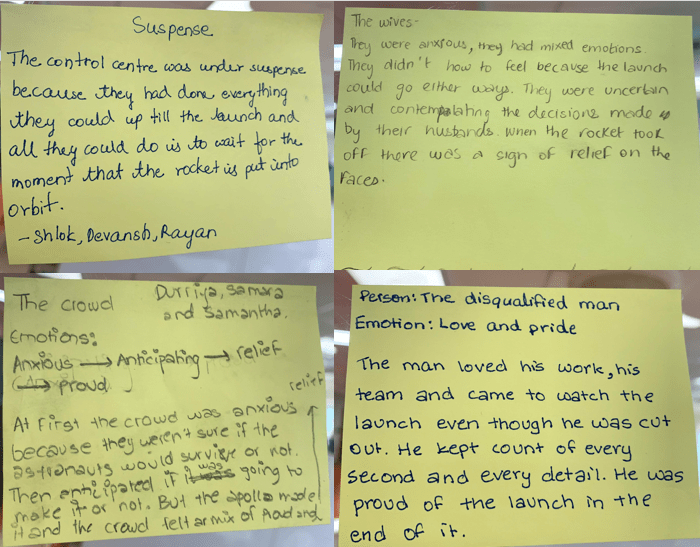 Suspense
The control centre was under suspense
because they had done everything
they could up till the launch and
all they could do is to wait for the
moment that the rocket is put into
orbit.
- Shlok, Devansh, Rayan
The wives-
They were anxious, they had mixed emotions.
They didn't how to feel because the launch
could go either ways. They were uncertain
and contemplating the decisions made
by their husbands. When the rocket took
off there was a sign of relief on the
faces.
The crowd
Durriya, Samara
and Samantha.
Emotions:
Anxious → Anticipating → relief
↳ proud.
relief
At first the crowd was anxious
because they weren't sure if the
astronauts would survive or not.
Then anticipated if it was going to
make it or not. But the apollo made
it and the crowd felt a mix of and
Person: The disqualified man
Emotion: Love and pride
The man loved his work, his
team and came to watch the
launch even though he was cut
out. He kept count of every
second and every detail. He was
proud of the launch in the
end of it.